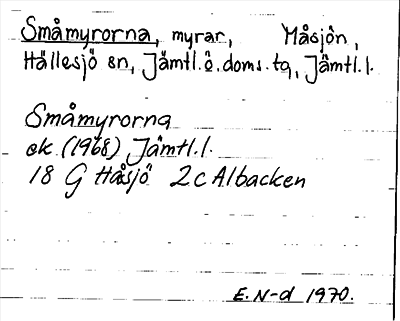 Småmyrorna, myrar, Måsjön,
Hällesjö sn, Jämtl.ö.doms.tg, Jämtl.l.
Småmyrorna
ek. (1968) Jämtl.l.
18 G Håsjö 2c Albacken
E. N-d 1970.